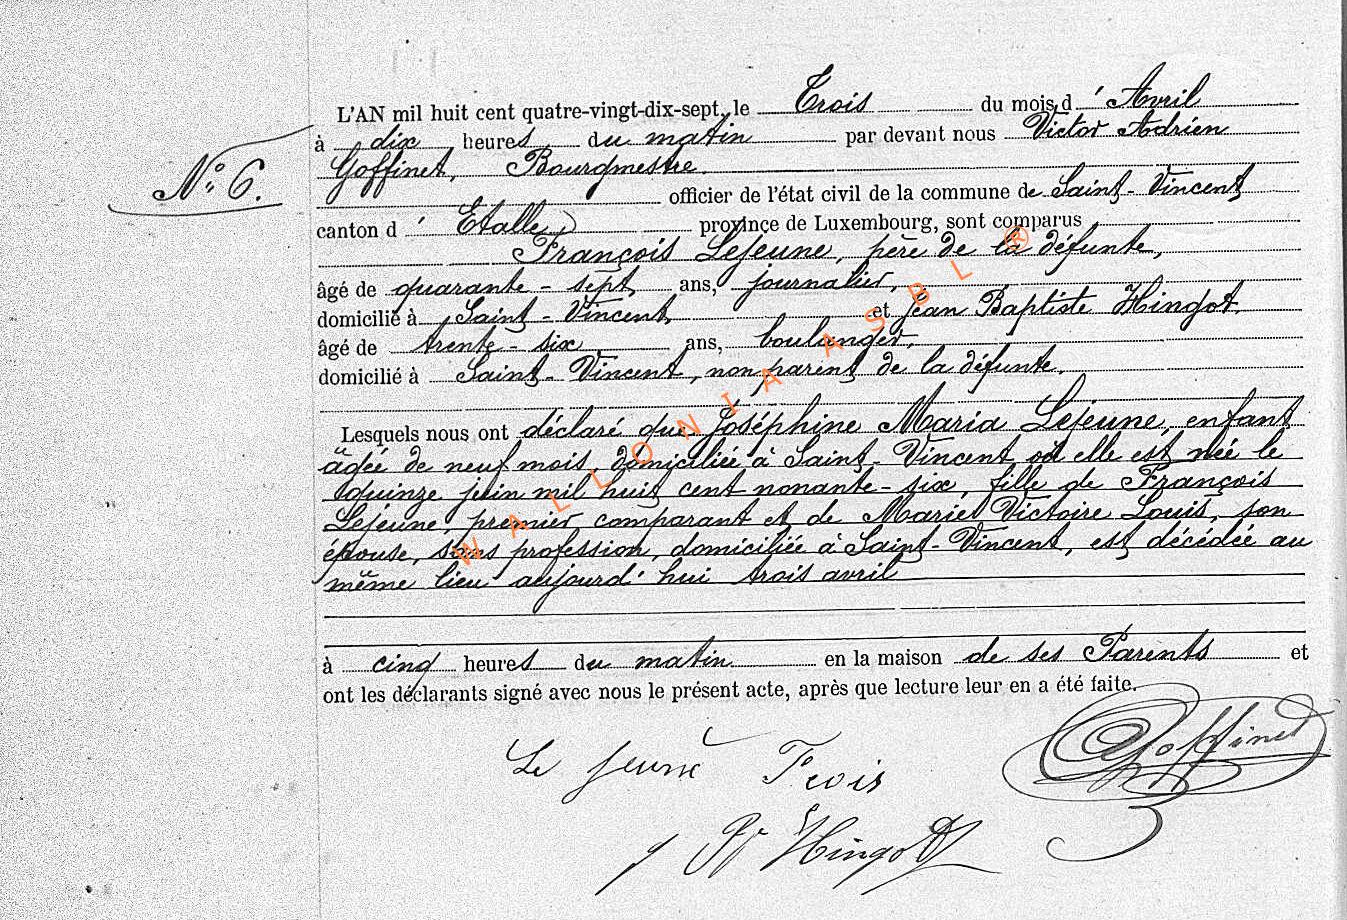 L'AN mil huit cent quatre-vingt-dix-sept, le Trois du mois d'Avril
à dix heures du matin par devant nous Victor Adrien
N° 6. Goffinet, Bourgmestre.
officier de l'état civil de la commune de Saint-Vincent
canton d'Etalle province de Luxembourg, sont comparus
François Lejeune, père de la défunte,
âgé de quarante-sept ans, journalier,
domicilié à Saint-Vincent, et Jean Baptiste Hingot.
âgé de trente-six ans, boulanger,
domicilié à Saint-Vincent, non parent de la défunte.
Lesquels nous ont déclaré que Joséphine Maria Lejeune, enfant
âgée de neuf mois, domiciliée à Saint-Vincent où elle est née le
quinze juin mil huit cent nonante-six, fille de François
Lejeune premier comparant et de Marie Victoire Louis, son
épouse, sans profession, domiciliée à Saint-Vincent, est décédée au
même lieu aujourd'hui trois avril
à cinq heures du matin en la maison de ses Parents et
ont les déclarants signé avec nous le présent acte, après que lecture leur en a été faite.
Le jeune Goffinet
Hingot
WALLONIA ASBL ®